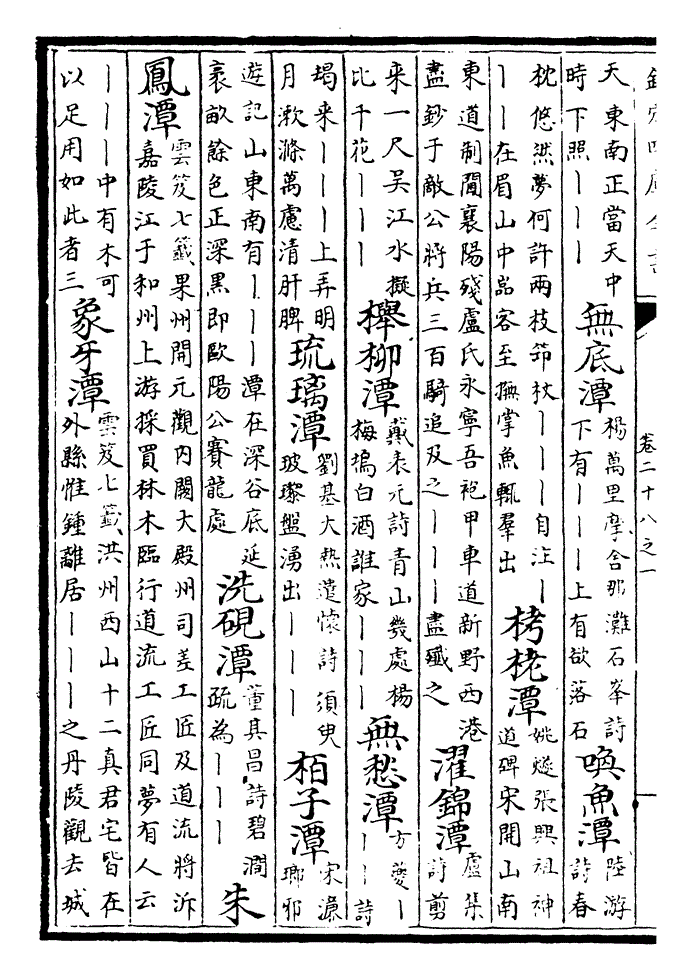 欽定四庫全書
卷二十八之一
天東南正當天中
時下照｜｜｜
無底潭
楊萬里摩舍那灘石峯詩
下有｜｜｜上有欲落石
喚魚潭
陸游
詩春
枕悠然夢何許兩枝笻杖｜｜｜自注｜
｜｜在眉山中嵓客至撫掌魚輒羣出
栲栳潭
姚燧張興祖神
道碑宋開山南
東道制閫襄陽殘盧氏永寧吾袍甲車道新野西港
盡鈔于敵公將兵三百騎追及之｜｜｜盡殲之
濯錦潭
虞集
詩剪
來一尺吳江水擬
比千花｜｜｜
櫸柳潭
戴表元詩青山幾處楊
梅塢白酒誰家｜｜｜
無愁潭
方夔｜
｜｜詩
朅来｜｜｜上弄明
月漱滌萬慮清肝脾
琉璃潭
劉基大熱遣懷詩須臾
玻瓈盤湧出｜｜｜
栢子潭
宋濂
瑯邪
遊記山東南有｜｜｜潭在深谷底延
袤畝餘色正深黑即歐陽公賽龍處
洗硯潭
董其昌詩碧澗
疏為｜｜｜
朱
鳳潭
雲笈七籤果州開元觀内闕大殿州司差工匠及道流將泝
嘉陵江于和州上游採買林木臨行道流工匠同夢有人云
｜｜｜中有木可
以足用如此者三
象牙潭
雲笈七籤洪州西山十二真君宅皆在
外縣惟鍾離居｜｜｜之丹陵觀去城